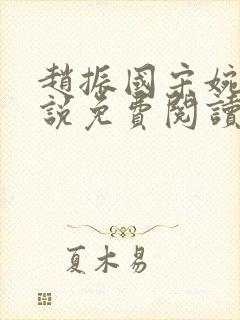 趙振國宋婉
說免費閱讀
夏木易